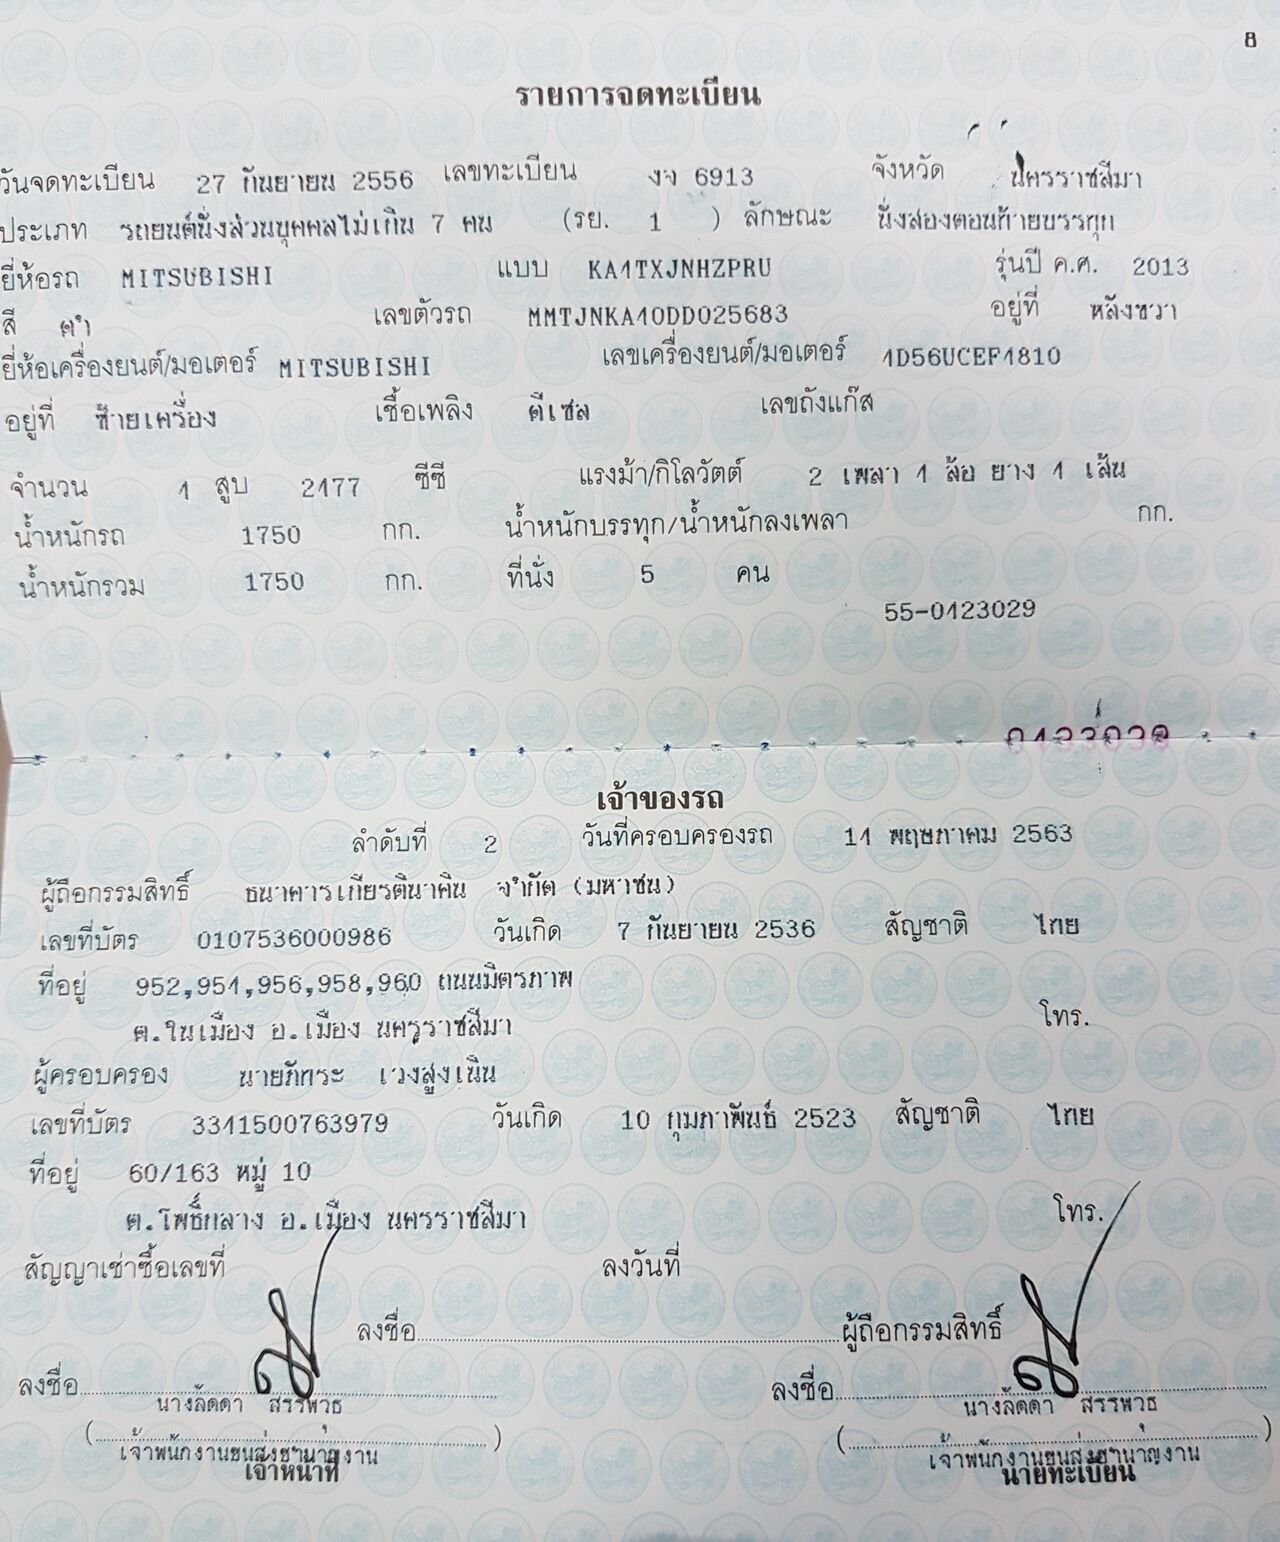 8
รายการจดทะเบียน
วันจดทะเบียน 27 กันยายน 2556 เลขทะเบียน งง 6913 จังหวัด นครราชสีมา
ประเภท รถยนต์นั่งส่วนบุคคลไม่เกิน 7 คน (รย. 1 ) ลักษณะ นั่งสองตอนท้ายบรรทุก
ยี่ห้อรถ MITSUBISHI แบบ KA4TXJNHZPRU รุ่นปี ค.ศ. 2013
สี ดำ เลขตัวรถ MMTJNKA40DD025683 อยู่ที่ หลังขวา
ยี่ห้อเครื่องยนต์/มอเตอร์ MITSUBISHI เลขเครื่องยนต์/มอเตอร์ 4D56UCEF4810
อยู่ที่ ซ้ายเครื่อง เชื้อเพลิง ดีเซล เลขถังแก๊ส
จำนวน 4 สูบ 2477 ซีซี แรงม้า/กิโลวัตต์ 2 เพลา 4 ล้อ ยาง 4 เส้น
น้ำหนักรถ 1750 กก. น้ำหนักบรรทุก/น้ำหนักลงเพลา กก.
น้ำหนักรวม 1750 กก. ที่นั่ง 5 คน
55-0123029
เจ้าของรถ
ลำดับที่ 2 วันที่ครอบครองรถ 14 พฤษภาคม 2563
ผู้ถือกรรมสิทธิ์ ธนาคารเกียรตินาคิน จำกัด (มหาชน)
เลขที่บัตร 0107536000986 วันเกิด 7 กันยายน 2536 สัญชาติ ไทย
ที่อยู่ 952,954,956,958,960 ถนนมิตรภาพ
ต.ในเมือง อ.เมือง นครราชสีมา โทร.
ผู้ครอบครอง นายภักระ เวงสูงเนิน
เลขที่บัตร 3341500763979 วันเกิด 10 กุมภาพันธ์ 2523 สัญชาติ ไทย
ที่อยู่ 60/163 หมู่ 10
ต.โพธิ์กลาง อ.เมือง นครราชสีมา โทร.
สัญญาเช่าซื้อเลขที่ ลงวันที่
ลงชื่อ ผู้ถือกรรมสิทธิ์
ลงชื่อ ลงชื่อ
นางลัดดา สรรพวุธ นางลัดดา สรรพวุธ
( ) ( )
เจ้าพนักงานขนส่งชำนาญงาน เจ้าพนักงานขนส่งชำนาญงาน
เจ้าหน้าที่ นายทะเบียน